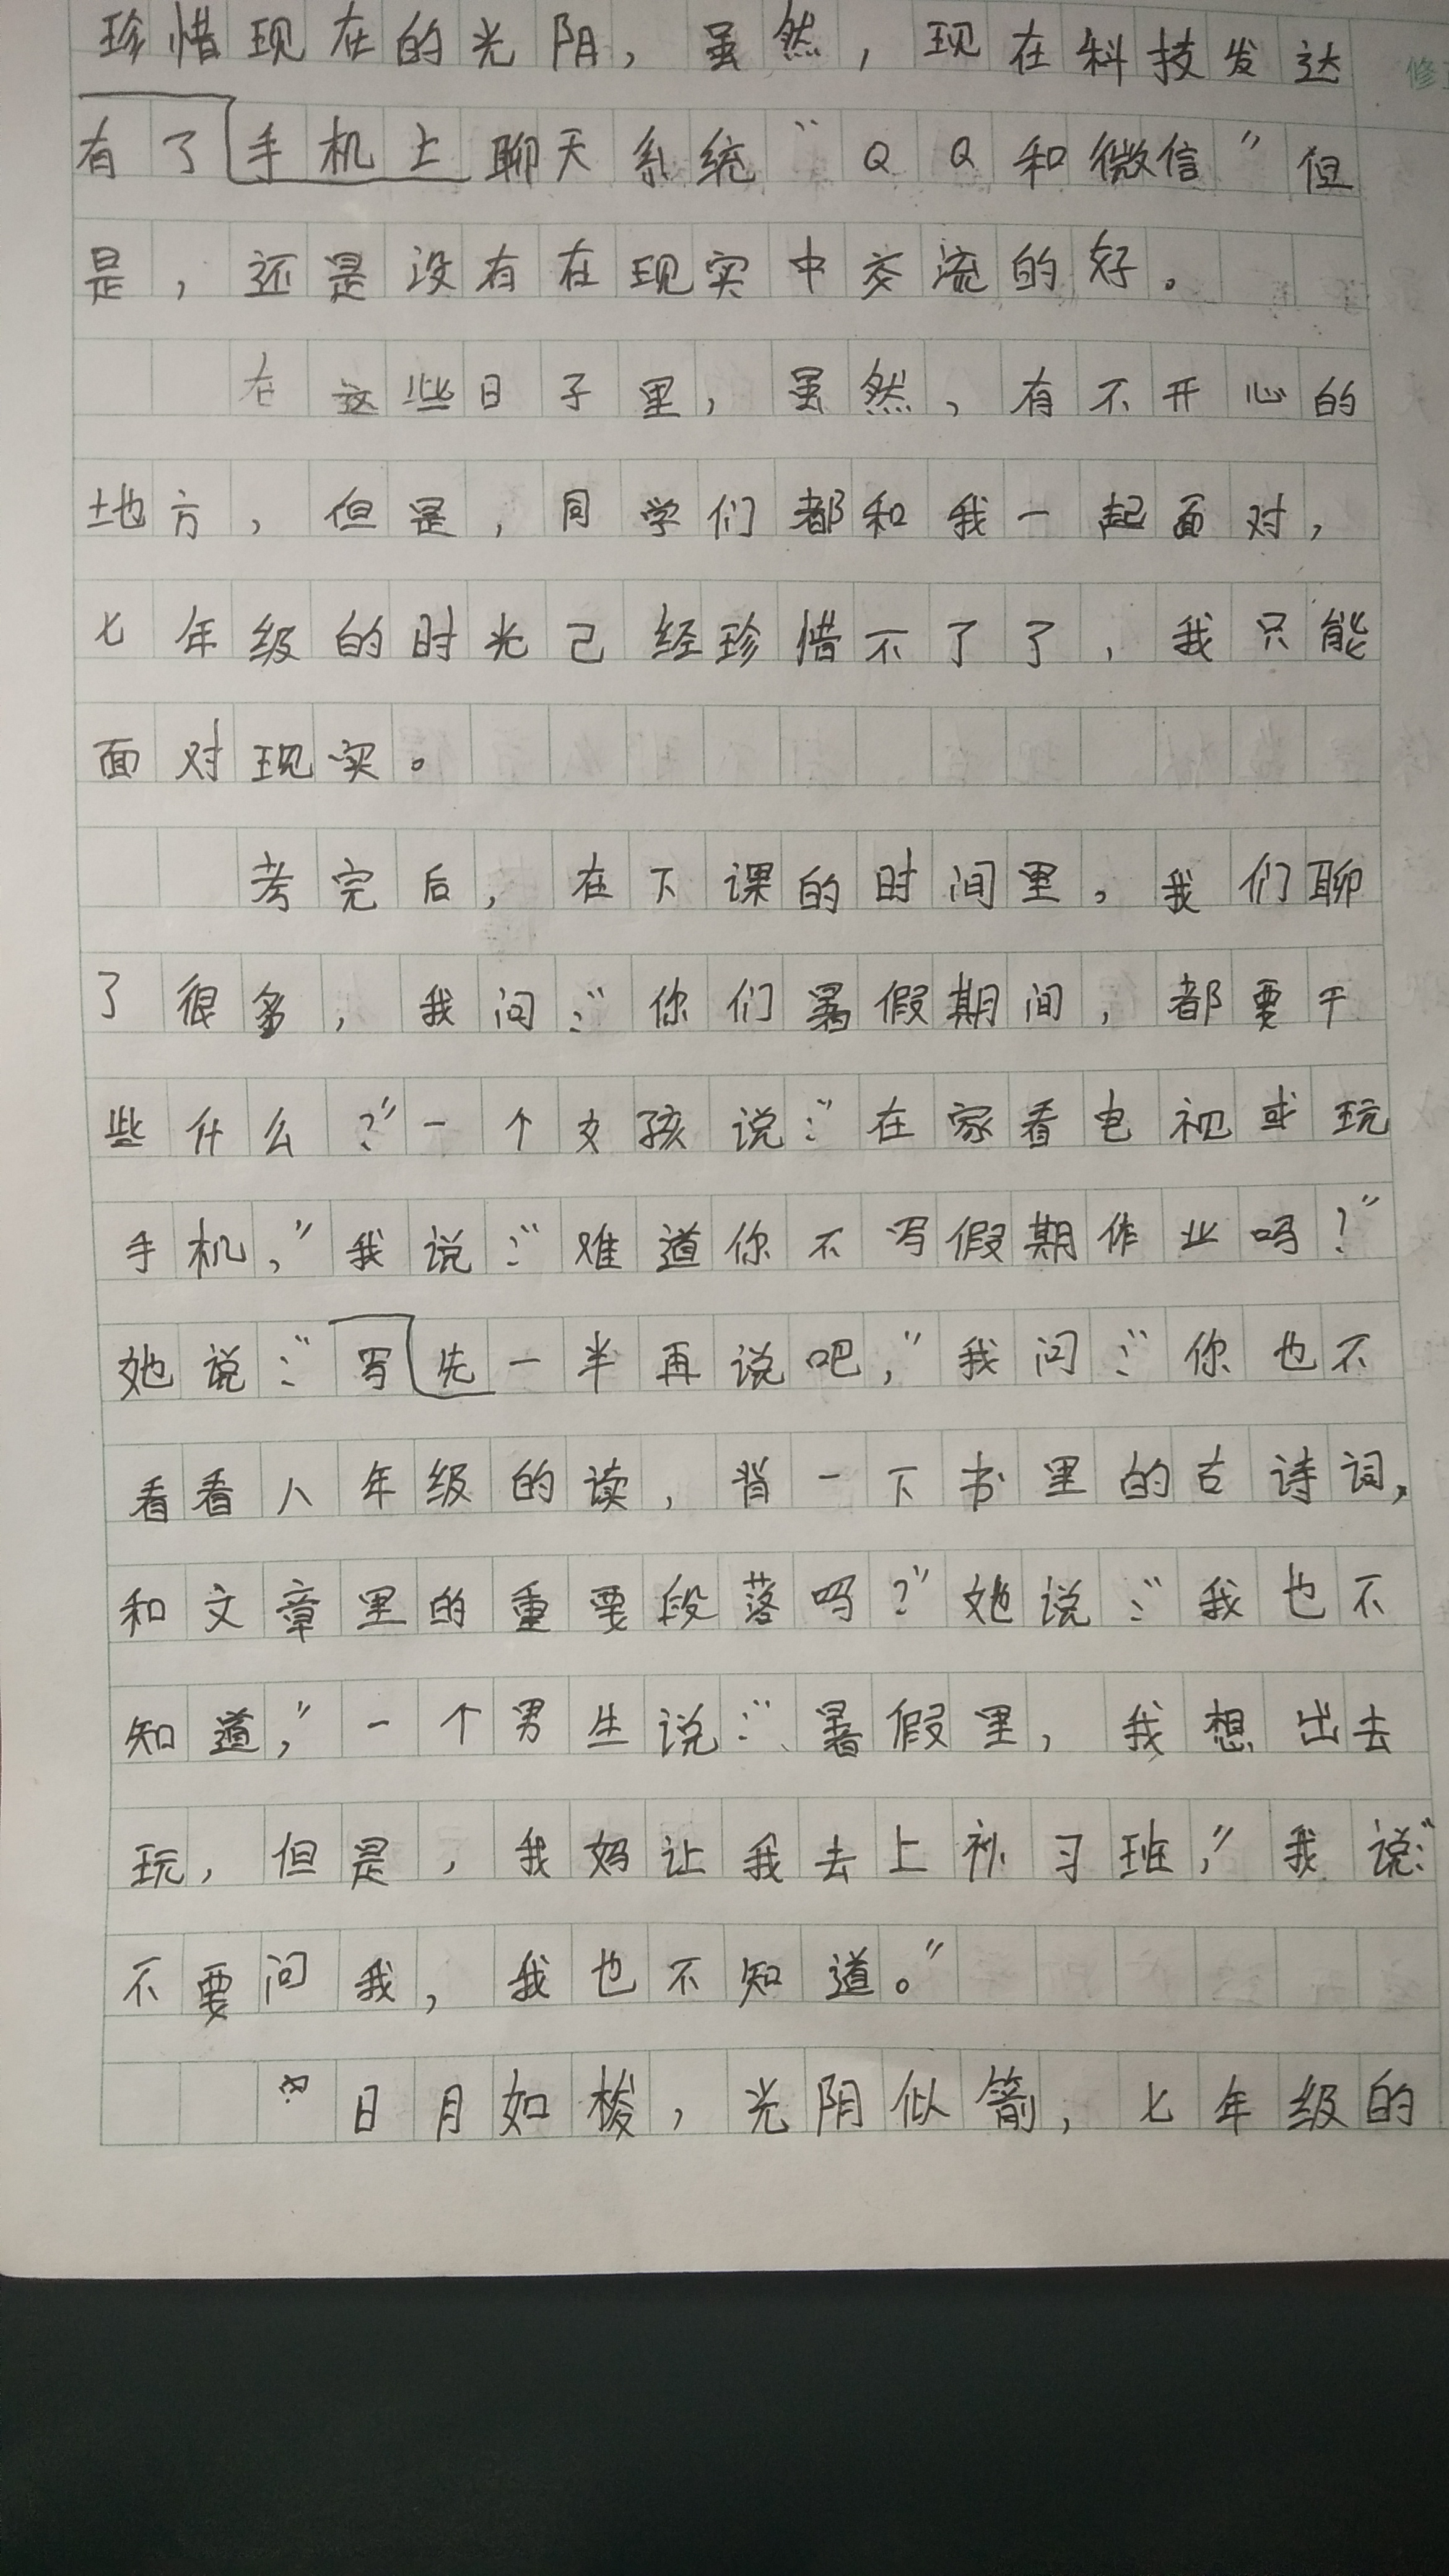 珍惜现在的光阴，虽然，现在科技发达
有了手机上聊天系统“QQ和微信”但
是，还是没有在现实中交流的好。
在这些日子里，虽然，有不开心的
地方，但是，同学们都和我一起面对，
七年级的时光己经珍惜不了了，我只能
面对现实。
考完后，在下课的时间里，我们聊
了很多，我问：“你们暑假期间，都要干
些什么？”一个女孩说：“在家看电视或玩
手机，”我说：“难道你不写假期作业吗？”
她说：“写先一半再说吧，”我问：“你也不
看看八年级的读，背一下书里的古诗词，
和文章里的重要段落吗？”她说：“我也不
知道，”一个男生说：“暑假里，我想出去
玩，但是，我妈让我去上补习班，”我说：“
不要问我，我也不知道。”
日月如梭，光阴似箭，七年级的